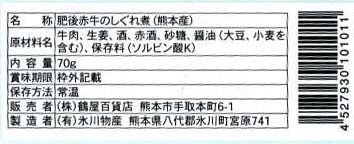 名称 肥後赤牛のしぐれ煮(熊本産)
原材料名 牛肉、生姜、酒、赤酒、砂糖、醤油(大豆、小麦を
含む)、保存料(ソルビン酸K)
内容量 70g
賞味期限 枠外記載
保存方法 常温
販売者 (株)鶴屋百貨店 熊本市手取本町6-1
製造者 (有)氷川物産 熊本県八代郡氷川町宮原741
4527930101011